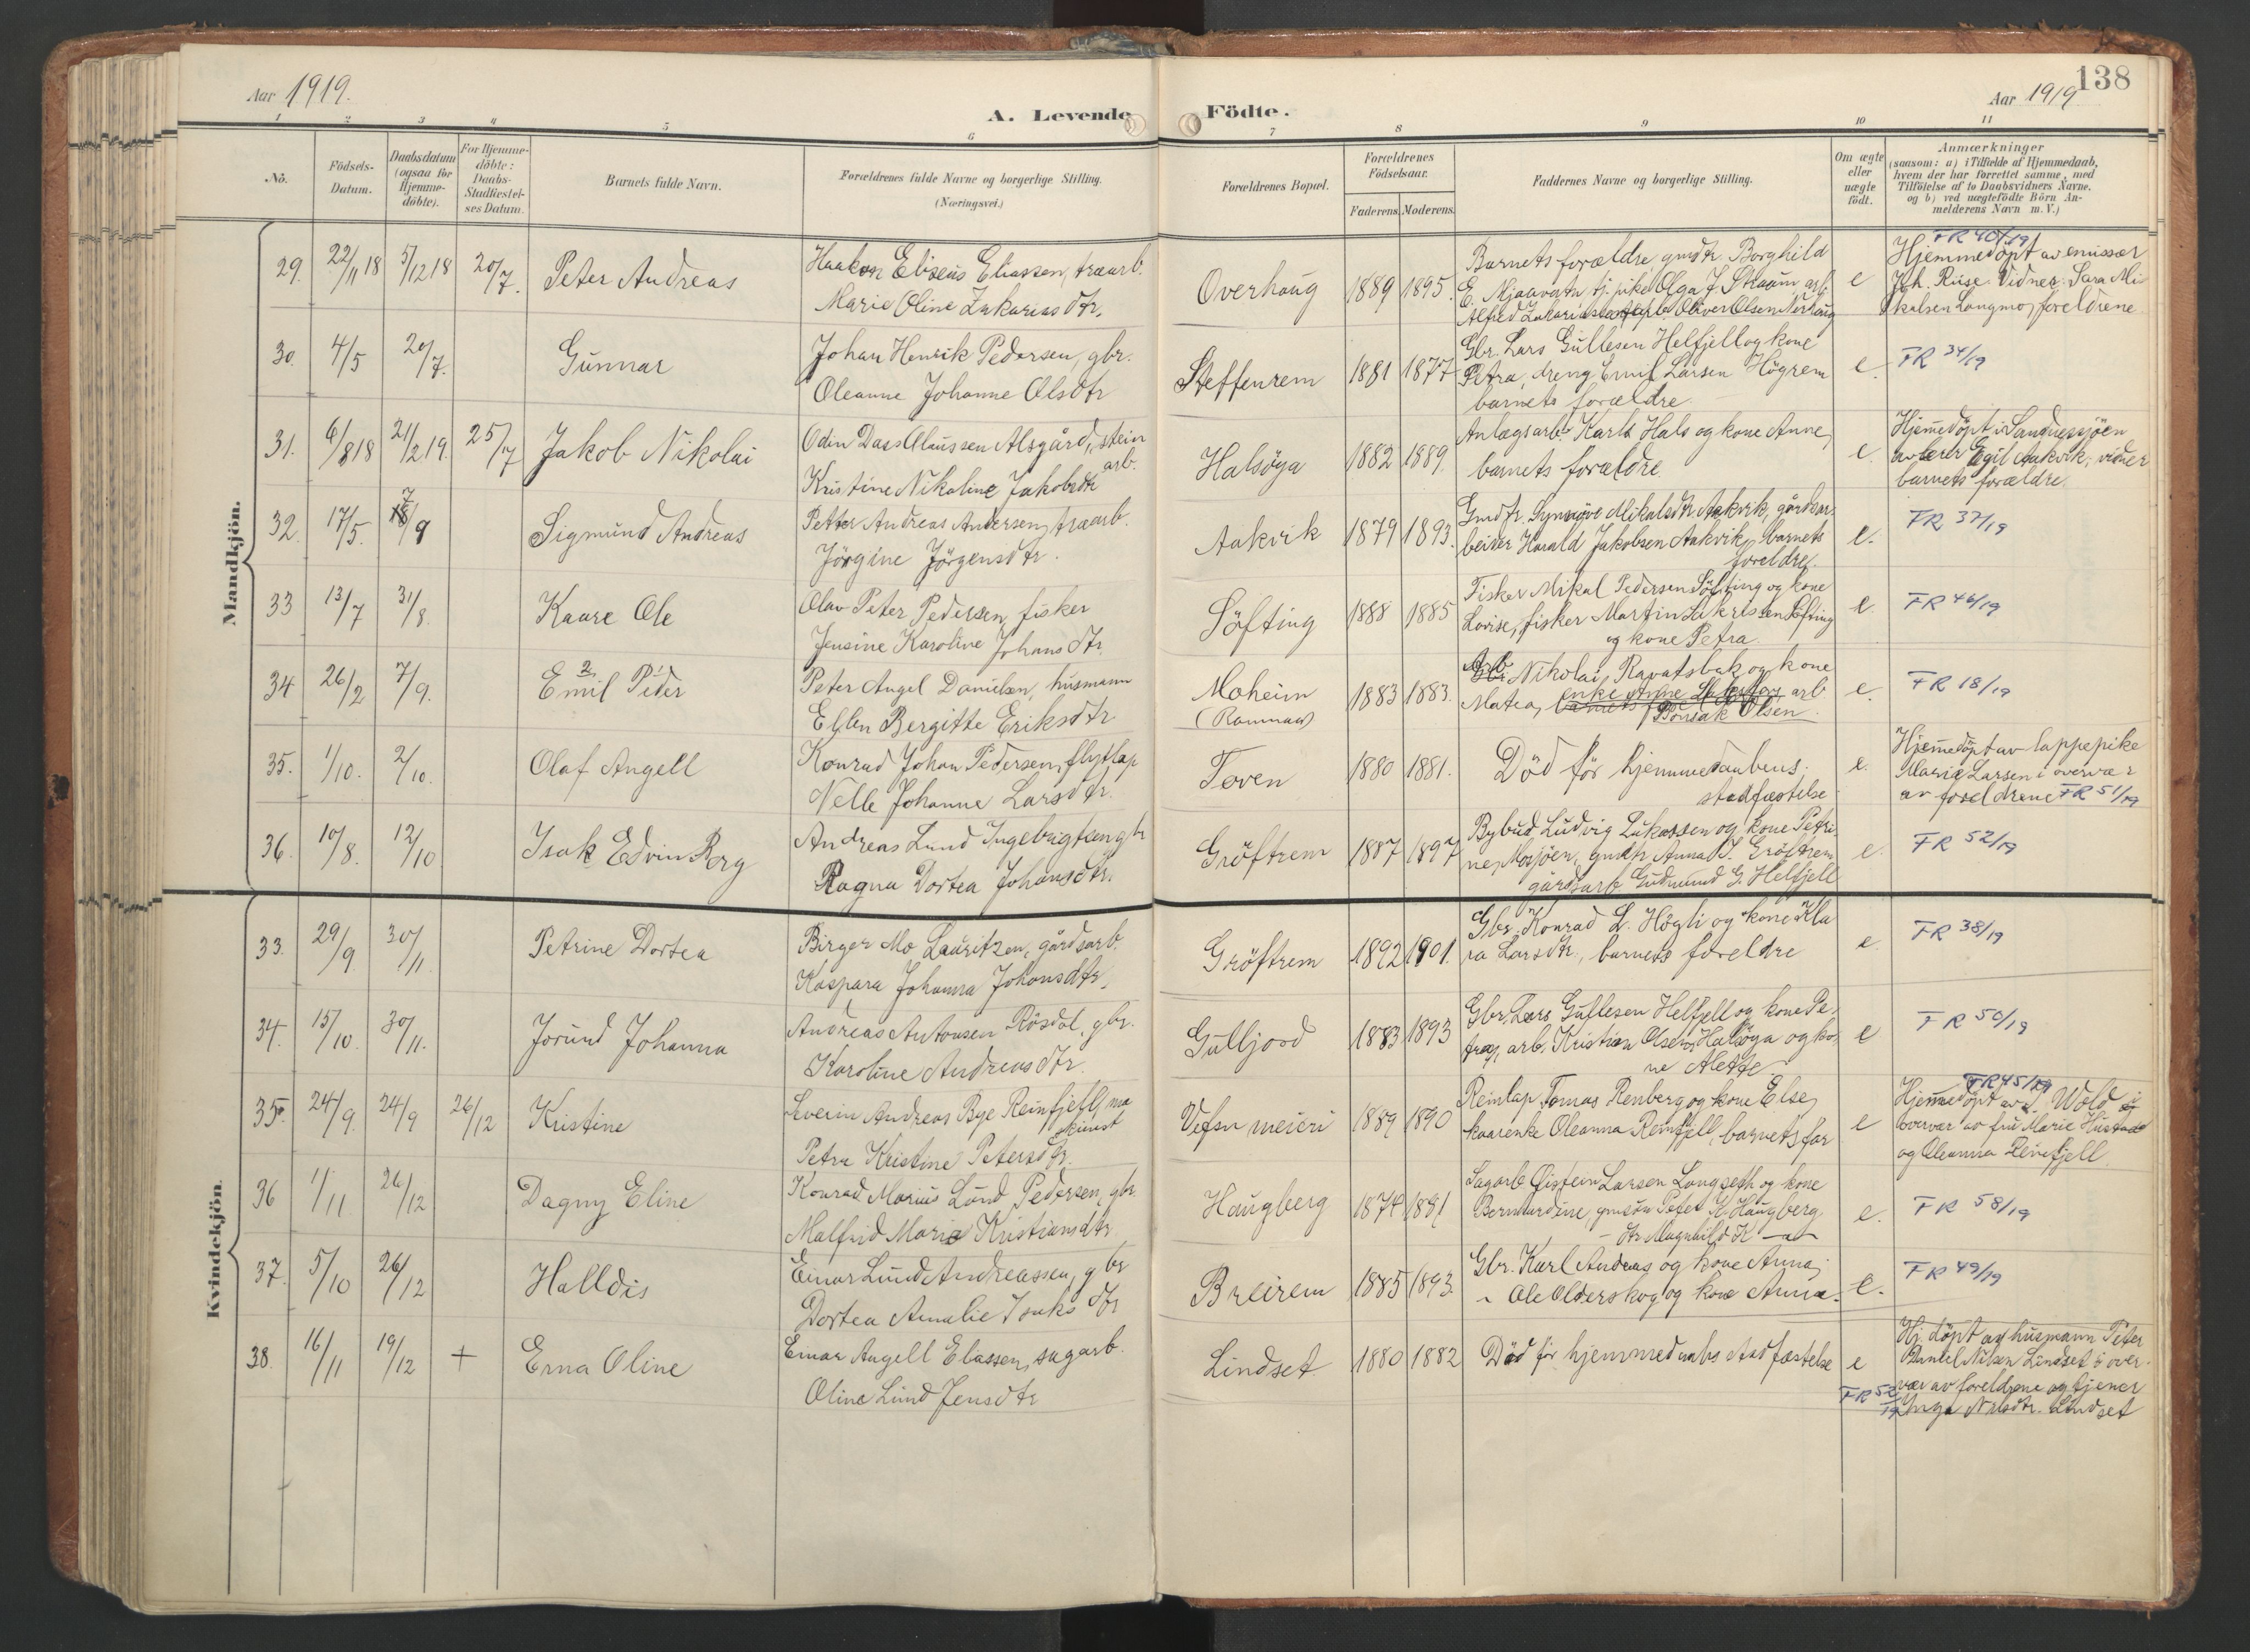 138
Aar 1919.
A. Levende Födte.
Aar 1919
1 2 3 4 5 6 7 8 9 10 11
No.
Födsels-Datum.
Daabsdatum (ogsaa for Hjemme-döbte).
For Hjemme-döbte: Daabs-Stadfæstel-ses Datum.
Barnets fulde Navn.
Forældrenes fulde Navne og borgerlige Stilling. (Næringsvei.)
Forældrenes Bopæl.
Forældrenes Födselsaar.
Faderens. Moderens.
Faddernes Navne og borgerlige Stilling.
Om ægte eller uægte födt.
Anmærkninger
(saasom: a) i Tilfælde af Hjemmedaab,
hvem der har forrettet samme, med
Tilföielse af to Daabsvidners Navne,
og b) ved uægtefödte Börn An-
melderens Navn m. V.)
Mandkjön.
29. 22/11 18 5/12 18 20/7. Peter Andreas
Haakon Eliseus Eliassen, traarb.
Marie Oline Zakariasdtr.
Overhaug 1889 1895.
Barnets forældre gmdtr. Borghild
E. Mjaavatn tj. pike Olga J. Straum arb.
Alfred Zakariassen Oliver Olsen
e
FR 40/19
Hjemmedöpt av emissær
Joh. Ruse. Vidner: Sara Mi
kalsen Langmo, foreldrene
30. 4/5 20/7. Gunnar
Johan Henrik Pedersen, gbr.
Oleanne Johanne Olsdtr
Steffenrem 1881 1877
Gbr. Lars Gullesen Helfjell og kone
Petra, dreng Emil Larsen Högrem
barnets forældre.
e.
FR 34/19
31. 6/8 18 21/2 19. 25/7 Jakob Nikolai
Odin Dass Claussen Alsgård, stein
arb.
Kristine Nikoline Jakobsdtr
Halsöya 1882 1889.
Anlægsarb. Karl Hals og kone Anne,
barnets forældre
e.
Hjemedöpt i Sandnessjöen
av lærer Egil Aakvik, vidner
barnets forældre.
32. 17/5. 7/9 Sigmund Andreas
Petter Andreas Andersen, traarb.
Jörgine Jörgensdtr.
Aakvik 1879 1893.
Gmdtr. Synnöve Mikalsdtr Aakvik, gårdsar
beider Harald Jakobsen Aakvik, barnets
foreldre.
e.
FR 37/19
33 13/7 31/8. Kaare Ole
Olav Peter Pedersen, fisker
Jensine Karoline Johansdtr.
Söfting 1888 1885
Fisker Mikal Pedersen Söfting og kone
Lovise, fisker Martin Zakrissen Söfting
og kone Petra.
e.
FR 46/19
34 26/2 7/9. Emil Peder
2 1
Peter Angel Danielsen, husmann
Ellen Bergitte Eriksdtr
Moheim
1883 1883.
Arb Nikolai Ravatsbak og kone
Matea, arb
Bonsak Olsen.
e.
FR 18/19
35. 1/10. 2/10. Olaf Angell
Konrad Johan Pedersen, flytlap
Nelle Johanne Larsdtr.
Toven 1880 1881.
Död för hjemmedaabens
stadfæstelse
e.
Hjemedöpt av lappepike
Marie Larsen i overvær
av foreldrene FR 51/19
36. 10/8. 12/10 Isak Edvin Borg
Andreas Lund Ingebrigtsen gbr
Ragna Dortea Johansdtr.
Gröftrem 1887 1897
Bybud Ludvig Lukassen og kone Petri
ne, Mosjöen, gmdtr Anna J. Gröftrem
gårdsarb Gudmund G. Helfjell
e.
FR 52/19
Kvindekjön.
33. 29/9. 30/11. Petrine Dortea
Birger Mo Lauritzen, gårdsarb.
Kaspara Johanna Johansdtr.
Gröftrem 1892 1901.
Gbr. Konrad L. Högli og kone Kla
ra Larsdtr., barnets foreldre
e.
FR 38/19
34. 15/10. 30/11. Jorund Johanna
Andreas Antonsen Rösdal, gbr.
Karoline Andreasdtr.
Gulljord 1883 1893
Gbr. Lars Gullesen Helfjell og kone Pe-
tra, arb. Kristian Olsen, Halsöya og ko-
ne Alette
e
FR 50/19
35. 24/9. 24/9 26/12 Kristine
Severin Andreas Bye Reinfjell, ma
skinist
Petra Kristine Petersdtr.
Vefsn meieri 1889 1890
Reinlap Tomas Renberg og kone Else,
kaarenke Oleanna Reinfjell, barnets far
e
FR 45/19
Hjemmedöpt av S. Wold i
overvær av fru Marie Hustad
og Oleanna Reinfjell.
36 1/11 26/12 Dagny Eline
Konrad Marius Lund Pedersen, gbr.
Malfrid Marie Kristiansdtr
Haugberg 1874 1881
Sagarb Öistein Larsen Langseth og kone
Bernhardine, gmsön Peter K. Haugberg
- dtr Magnhild K -"-
e.
FR 58/19
37. 5/10 26/12 Halldis
Einar Lund Andreassen, gbr
Dortea Amalie Isaksdtr
Breirem 1885 1893.
Gbr. Karl Andreas og kone Anna,
" Ole Olderskog og kone Anna.
e.
FR 49/19
38. 16/11 19/12 + Erna Oline
Einar Angell Elassen, sagarb.
Oline Lund Jensdtr
Lindset 1880 1882
Död för hjemmedaabs stadfæstelse
e
FR 52/19
Hj. döpt av husmann Peter
Daniel Nilsen Lindset i over-
vær av foreldrene og tjener
Inga Nilsdtr. Lindset